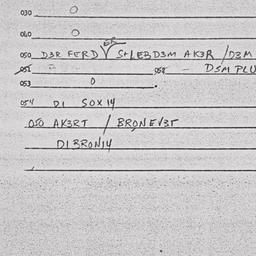 030 0
040 0
050 D3R FERD ER S+LEB D3M AK3R / D3M
051 - 052 - D5M PLU
053 0 .
054 D1 SOX14
050 AK3RT / BRONEV3T
D1 BRON14